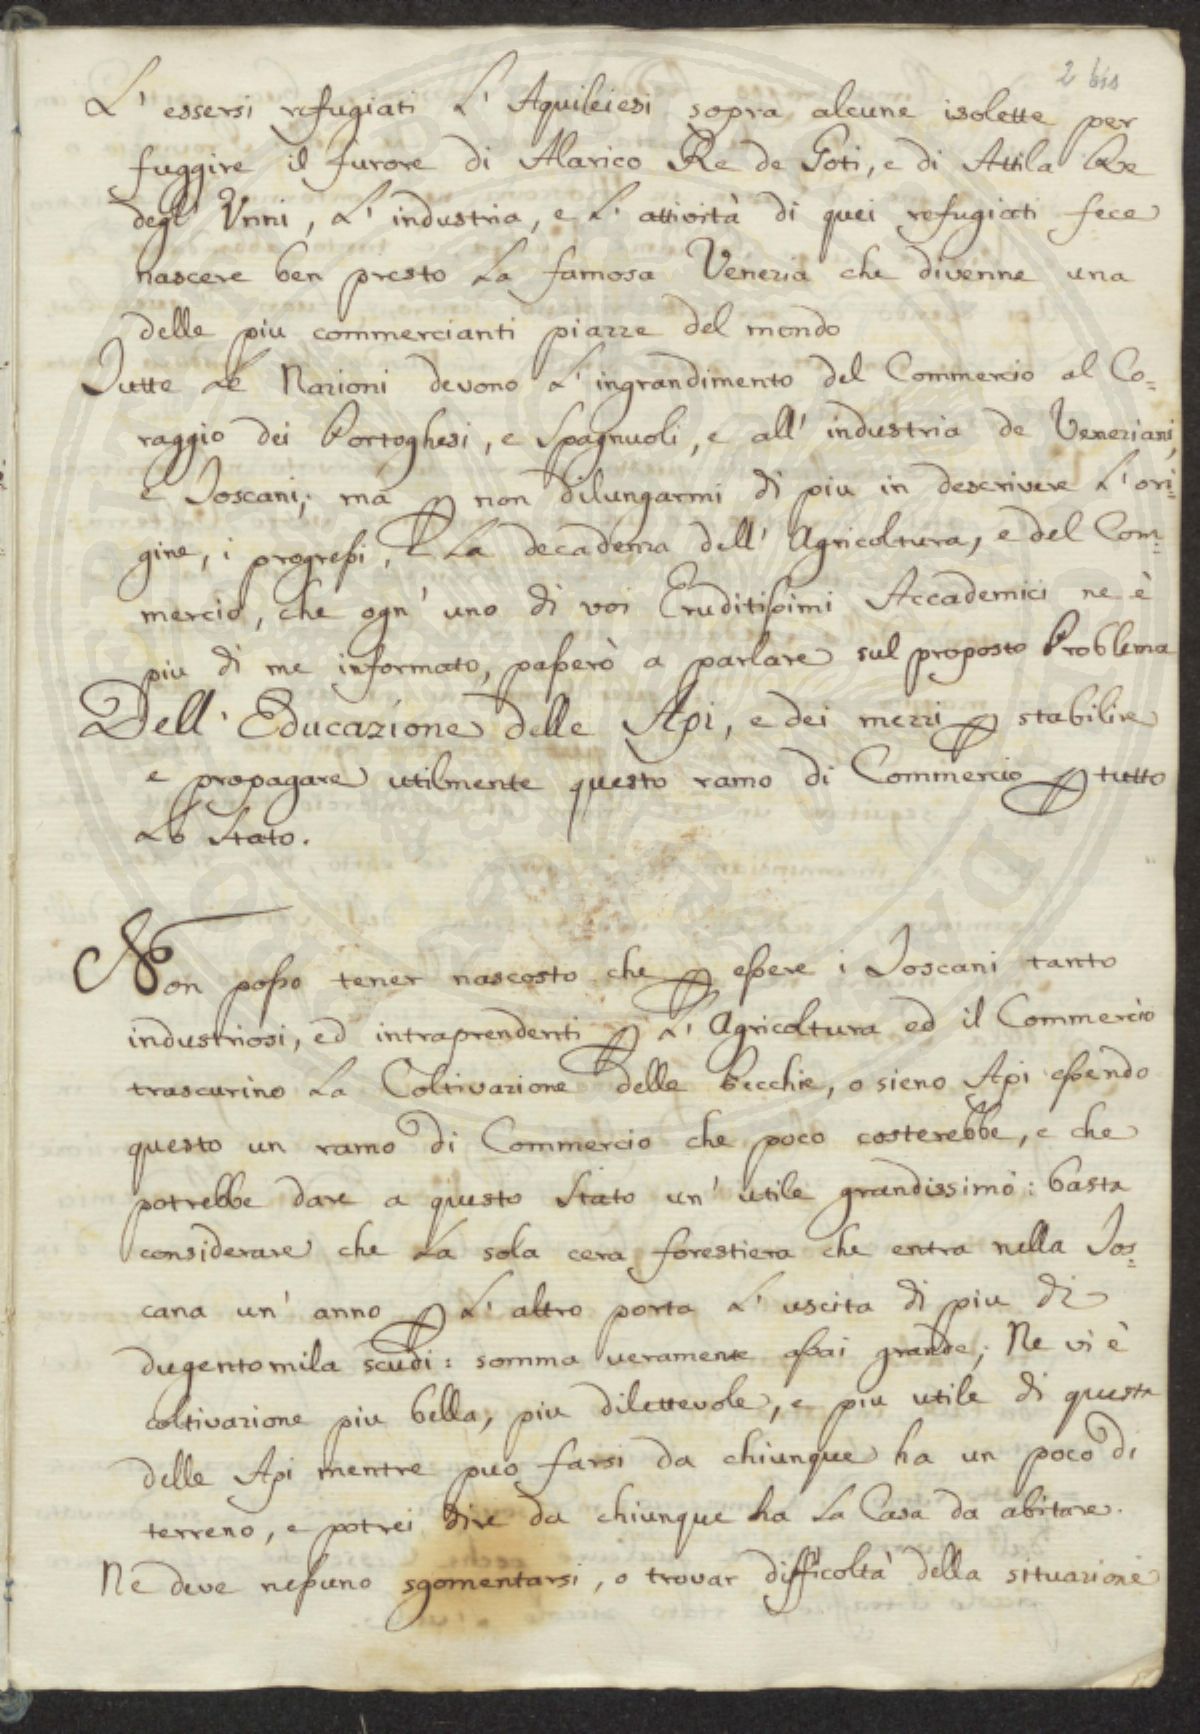 2 bis
L' essersi refugiati L' Aquileiesi sopra alcune isolette per
fuggire il furore di Alarico Re de Goti, e di Attila Re
degl' Unni, L' industria, e L' attività di quei refugiati fece
nascere ben presto La famosa Venezia che divenne una
delle piu commercianti piazze del mondo
Tutte Le Nazioni devono L' ingrandimento del Commercio al Co=
raggio dei Portoghesi, e Spagnuoli, e all' industria de Veneziani,
e Toscani; ma ꝑ non dilungarmi di piu in descrivere L' ori=
gine, i progreſsi, e La decadenza dell' Agricoltura, e del Com=
mercio, che ogn' uno di voi Eruditiſsimi Accademici ne è
piu di me informato, paſserò a parlare sul proposto Problema
Dell' Educazione delle Api, e dei mezzi ꝑ stabilire
e propagare utilmente questo ramo di Commercio ꝑ tutto
Lo Stato.
Non poſso tener nascosto che ꝑ eſsere i Toscani tanto
industriosi, ed intraprendenti ꝑ L' Agricoltura ed il Commercio
trascurino La Coltivazione delle Pecchie, o sieno Api eſsendo
questo un ramo di Commercio che poco costerebbe, e che
potrebbe dare a questo Stato un' utile grandissimo: basta
considerare che La sola cera forestiera che entra nella Tos=
cana un' anno ꝑ L' altro porta L' uscita di piu di
dugentomila scudi: somma veramente aſsai grande; Ne vi è
coltivazione piu bella, piu dilettevole, e piu utile di questa
delle Api mentre puo farsi da chiunque ha un poco di
terreno, e potrei dire da chiunque ha La Casa da abitare.
Ne deve neſsuno sgomentarsi, o trovar difficoltà della situazione